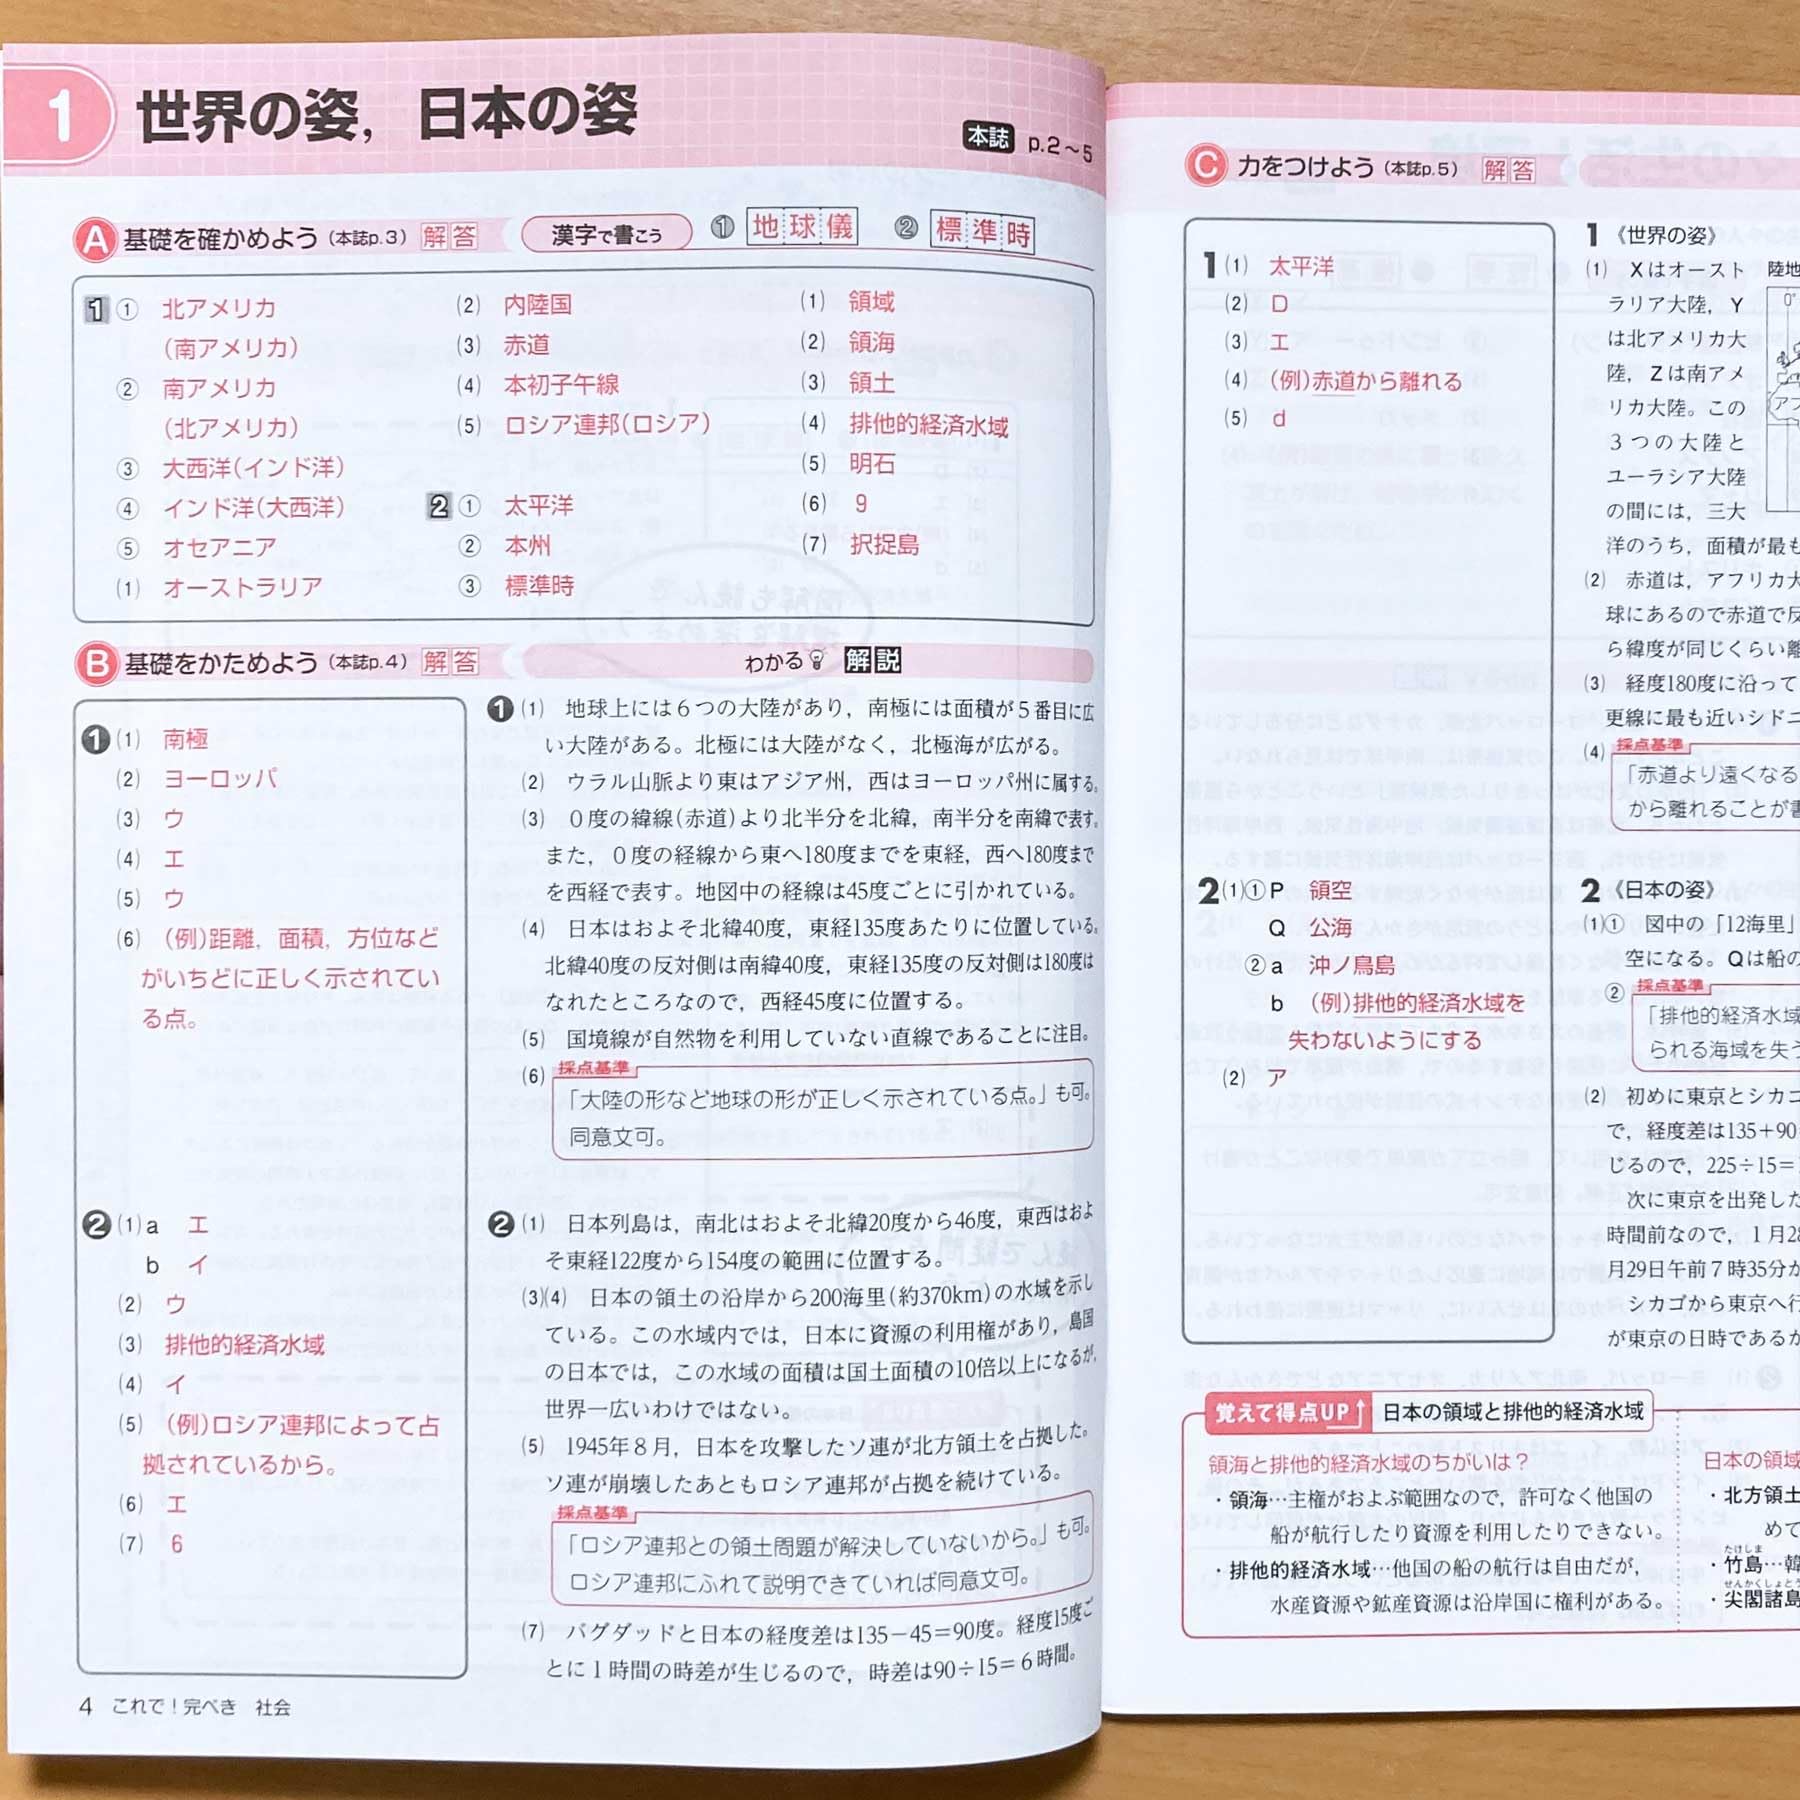 1 世界の姿，日本の姿
本誌 p.2～5
A 基礎を確かめよう（本誌p.3） 解答 漢字で書こう ① 地球儀 ② 標準時
1 ① 北アメリカ
（南アメリカ）
② 南アメリカ
（北アメリカ）
③ 大西洋（インド洋）
④ インド洋（大西洋）
⑤ オセアニア
(1) オーストラリア
(2) 内陸国
(3) 赤道
(4) 本初子午線
(5) ロシア連邦（ロシア）
2 ① 太平洋
② 本州
③ 標準時
(1) 領域
(2) 領海
(3) 領土
(4) 排他的経済水域
(5) 明石
(6) 9
(7) 択捉島
B 基礎をかためよう（本誌p.4） 解答
1 (1) 南極
(2) ヨーロッパ
(3) ウ
(4) エ
(5) ウ
(6) （例）距離，面積，方位など
がいちどに正しく示されてい
る点。
2 (1) a エ
b イ
(2) ウ
(3) 排他的経済水域
(4) イ
(5) （例）ロシア連邦によって占
拠されているから。
(6) エ
(7) 6
わかる 解説
1 (1) 地球上には６つの大陸があり，南極には面積が５番目に広
い大陸がある。北極には大陸がなく，北極海が広がる。
(2) ウラル山脈より東はアジア州，西はヨーロッパ州に属する。
(3) ０度の緯線（赤道）より北半分を北緯，南半分を南緯で表す。
また，０度の経線から東へ180度までを東経，西へ180度まで
を西経で表す。地図中の経線は45度ごとに引かれている。
(4) 日本はおよそ北緯40度，東経135度あたりに位置している。
北緯40度の反対側は南緯40度，東経135度の反対側は180度は
なれたところなので，西経45度に位置する。
(5) 国境線が自然物を利用していない直線であることに注目。
(6) 採点基準
「大陸の形など地球の形が正しく示されている点。」も可。
同意文可。
2 (1) 日本列島は，南北はおよそ北緯20度から46度，東西はおよ
そ東経122度から154度の範囲に位置する。
(3)(4) 日本の領土の沿岸から200海里（約370km）の水域を示し
ている。この水域内では，日本に資源の利用権があり，島国
の日本では，この水域の面積は国土面積の10倍以上になるが，
世界一広いわけではない。
(5) 1945年８月，日本を攻撃したソ連が北方領土を占拠した。
ソ連が崩壊したあともロシア連邦が占拠を続けている。
採点基準
「ロシア連邦との領土問題が解決していないから。」も可。
ロシア連邦にふれて説明できていれば同意文可。
(7) バグダッドと日本の経度差は135－45＝90度。経度15度ご
とに１時間の時差が生じるので，時差は90÷15＝６時間。
4 これで！完ぺき 社会
C 力をつけよう（本誌p.5） 解答
1 (1) 太平洋
(2) D
(3) エ
(4) （例）赤道から離れる
(5) d
2 (1)① P 領空
Q 公海
② a 沖ノ鳥島
b （例）排他的経済水域を
失わないようにする
(2) ア
1 《世界の姿》
(1) Ｘはオースト 陸地
ラリア大陸，Ｙ 0°
は北アメリカ大
陸，Ｚは南アメ
リカ大陸。この アフ
３つの大陸と
ユーラシア大陸
の間には，三大
洋のうち，面積が最も
(2) 赤道は，アフリカ大
球にあるので赤道で反
ら緯度が同じくらい離
(3) 経度180度に沿って
更線に最も近いシドニ
(4) 採点基準
「赤道より遠くなる
から離れることが書
2 《日本の姿》
(1)① 図中の「12海里」
空になる。Qは船の
② 採点基準
「排他的経済水域
られる海域を失う
(2) 初めに東京とシカゴ
で，経度差は135＋90
じるので，225÷15＝
次に東京を出発した
時間前なので，１月28
月29日午前７時35分か
シカゴから東京へ行
が東京の日時であるか
覚えて得点UP 日本の領域と排他的経済水域
領海と排他的経済水域のちがいは？
・領海…主権がおよぶ範囲なので，許可なく他国の
船が航行したり資源を利用したりできない。
・排他的経済水域…他国の船の航行は自由だが，
水産資源や鉱産資源は沿岸国に権利がある。
日本の領域
・北方領土
めて
たけしま
・竹島…韓
せんかくしょとう
・尖閣諸島